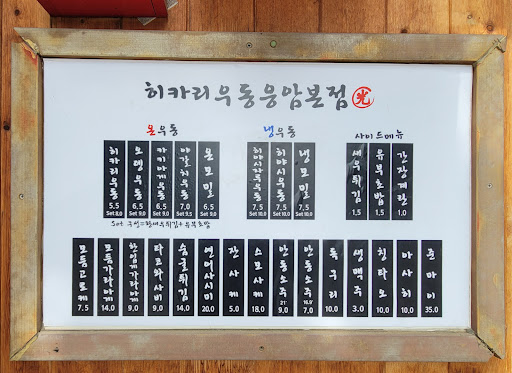 히카리우동응암본점 光
온우동
히카리우동 5.5 Set 8.0
오뎅우동 6.5 Set 9.0
카키아게우동 6.5 Set 9.0
야갈치우동 7.0 Set 9.5
온모밀 6.5 Set 9.0
Set 구성=한새우튀김+유부초밥
냉우동
히야시카우동 7.5 Set 10.0
히야시우동 7.5 Set 10.0
냉모밀 7.5 Set 10.0
사이드메뉴
새우튀김 1.5
유부초밥 1.5
간장계란 1.0
모듬고로케 7.5
모둠가라아게 14.0
한입게가라아게 9.0
타코와사비 9.0
숨굴튀김 14.0
연어사시미 20.0
잔사케 5.0
스모사케 18.0
안동소주 21˚ 9.0
안동소주 16.9˚ 7.0
독구리 10.0
생맥주 3.0
칭타오 10.0
아사히 10.0
준마이 35.0